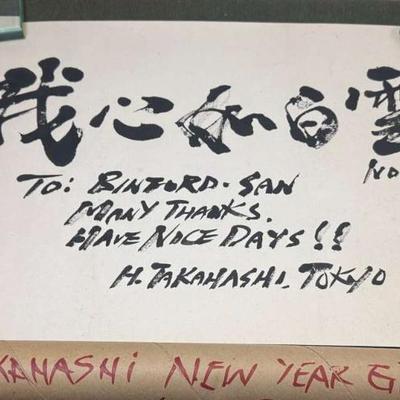 我心如白雲
No
TO: BINFORD-SAN
MANY THANKS.
HAVE NICE DAYS!!
H. TAKAHASHI. TOKYO
KAHASHI NEW YEAR G